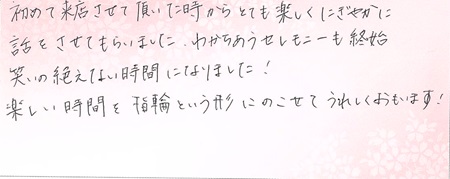 初めて来店させて頂いた時からとても楽しくにぎやかに
話をさせてもらいました。わかちあうセレモニーも終始
笑いの絶えない時間になりました！
楽しい時間を指輪という形にのこせてうれしくおもいます！